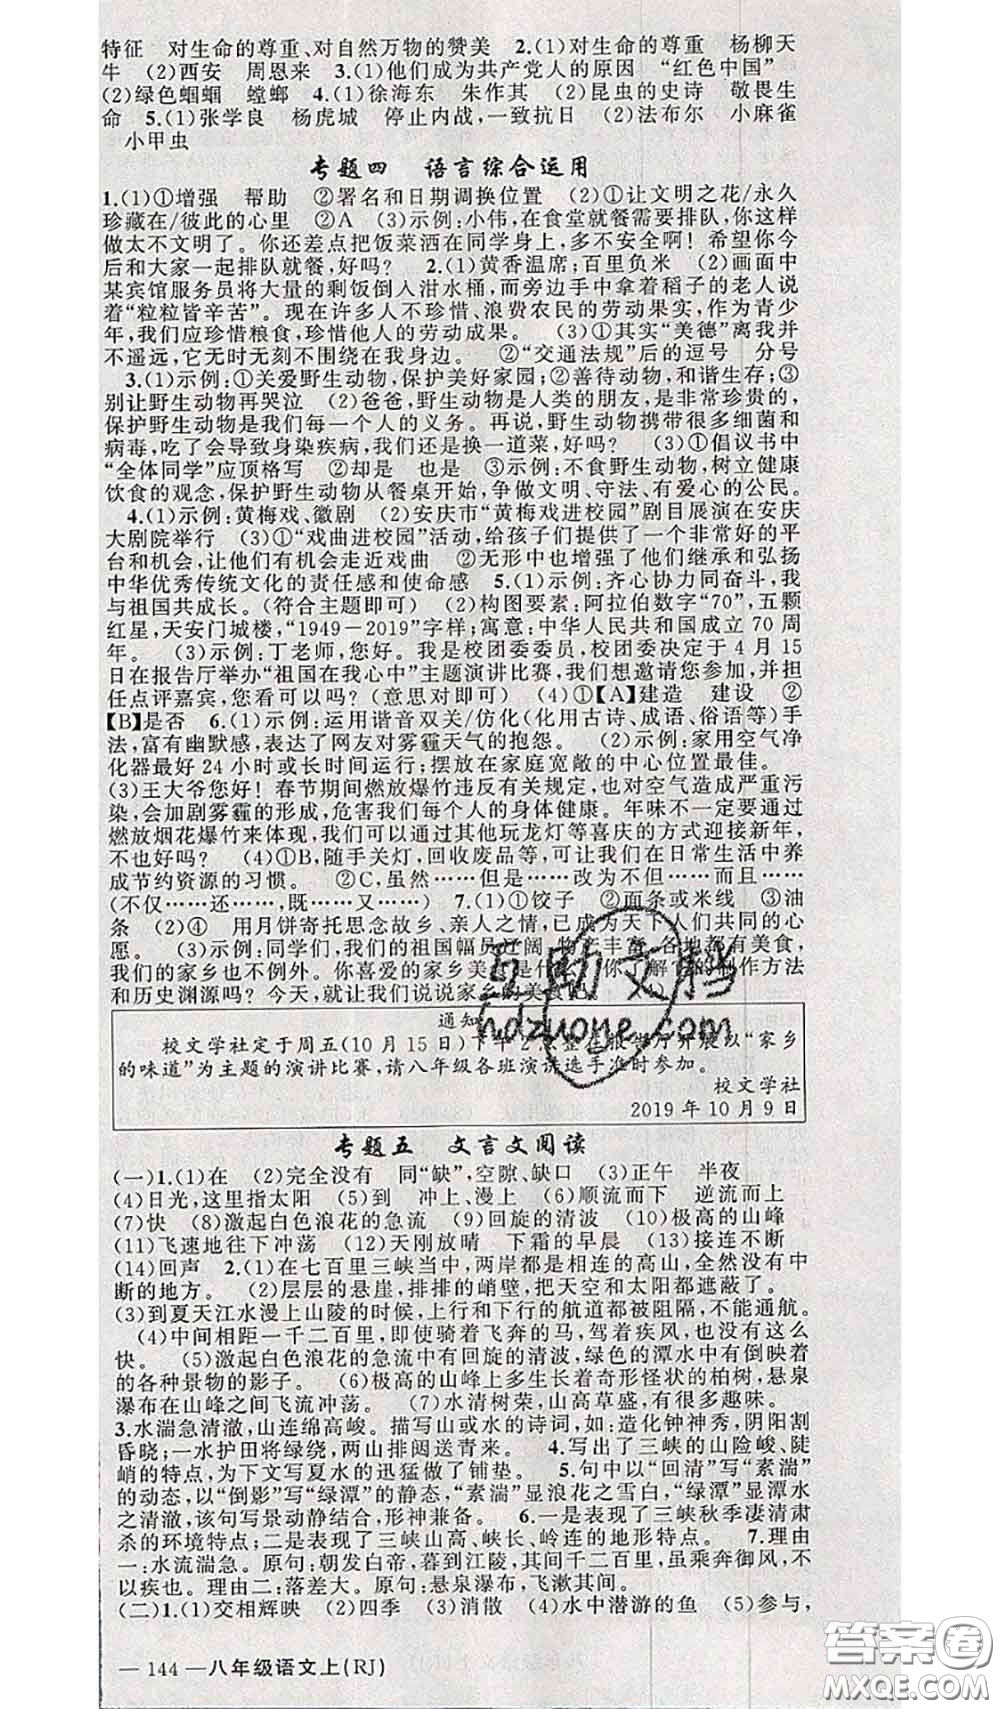 特征　对生命的尊重、对自然万物的赞美　2.(1)对生命的尊重　杨柳天
牛　(2)西安　周恩来　3.(1)他们成为共产党人的原因　“红色中国”
(2)绿色蝈蝈　螳螂　4.(1)徐海东　朱作其　(2)昆虫的史诗　敬畏生
命　5.(1)张学良　杨虎城　停止内战,一致抗日　(2)法布尔　小麻雀
小甲虫
专题四　语言综合运用
1.(1)①增强　帮助　②署名和日期调换位置　(2)①让文明之花/永久
珍藏在/彼此的心里　②A　(3)示例:小伟,在食堂就餐需要排队,你这样
做太不文明了。你还差点把饭菜洒在同学身上,多不安全啊！希望你今
后和大家一起排队就餐,好吗？　2.(1)黄香温席;百里负米　(2)画面中
某宾馆服务员将大量的剩饭倒入泔水桶,而旁边手中拿着稻子的老人说
着“粒粒皆辛苦”。现在许多人不珍惜、浪费农民的劳动果实,作为青少
年,我们应珍惜粮食,珍惜他人的劳动成果。　(3)①其实“美德”离我并
不遥远,它无时无刻不围绕在我身边。　②“交通法规”后的逗号　分号
3.(1)示例:①关爱野生动物,保护美好家园;②善待动物,和谐生存;③
别让野生动物再哭泣　(2)爸爸,野生动物是人类的朋友,是非常珍贵的,
保护野生动物是我们每一个人的义务。再说,野生动物携带很多细菌和
病毒,吃了会导致身染疾病,我们还是换一道菜,好吗？　(3)①倡议书中
“全体同学”应顶格写　②却是　也是　③示例:不食野生动物,树立健康
饮食的观念,保护野生动物从餐桌开始,争做文明、守法、有爱心的公民。
4.(1)示例:黄梅戏、徽剧　(2)安庆市“黄梅戏进校园”剧目展演在安庆
大剧院举行　(3)①“戏曲进校园”活动,给孩子们提供了一个非常好的平
台和机会,让他们有机会走近戏曲　②无形中也增强了他们继承和弘扬
中华优秀传统文化的责任感和使命感　5.(1)示例:齐心协力同奋斗,我
与祖国共成长。(符合主题即可)　(2)构图要素:阿拉伯数字“70”,五颗
红星,天安门城楼,“1949－2019”字样;寓意:中华人民共和国成立 70 周
年。　(3)示例:丁老师,您好。我是校团委委员,校团委决定于 4 月 15
日在报告厅举办“祖国在我心中”主题演讲比赛,我们想邀请您参加,并担
任点评嘉宾,您看可以吗？(意思对即可)　(4)①【A】建造　建设　②
【B】是否　6.(1)示例:运用谐音双关/仿化(化用古诗、成语、俗语等)手
法,富有幽默感,表达了网友对雾霾天气的抱怨。　(2)示例:家用空气净
化器最好 24 小时或长时间运行;摆放在家庭宽敞的中心位置最佳。
(3)王大爷您好！春节期间燃放爆竹违反有关规定,也对空气造成严重污
染,会加剧雾霾的形成,危害我们每个人的身体健康。年味不一定要通过
燃放烟花爆竹来体现,我们可以通过其他玩龙灯等喜庆的方式迎接新年,
不也好吗？　(4)①B,随手关灯,回收废品等,可让我们在日常生活中养
成节约资源的习惯。　②C,虽然……但是……改为不但……而且……
(不仅……还……,既……又……)　7.(1)①饺子　②面条或米线　③油
条　(2)④　用月饼寄托思念故乡、亲人之情,已成为天下人们共同的心
愿。　(3)示例:同学们,我们的祖国幅员辽阔,物产丰富,各地都有美食,
我们的家乡也不例外。你喜爱的家乡美食是什么？你了解它的制作方法
和历史渊源吗？今天,就让我们说说家乡的美食吧。
通知
校文学社定于周五(10 月 15 日)下午 2 开展以“家乡
的味道”为主题的演讲比赛,请八年级各班演讲选手准时参加。
校文学社
2019 年 10 月 9 日
专题五　文言文阅读
(一)1.(1)在　(2)完全没有　同“缺”,空隙、缺口　(3)正午　半夜
(4)日光,这里指太阳　(5)到　冲上、漫上　(6)顺流而下　逆流而上
(7)快　(8)激起白色浪花的急流　(9)回旋的清波　(10)极高的山峰
(11)飞速地往下冲荡　(12)天刚放晴　下霜的早晨　(13)接连不断
(14)回声　2.(1)在七百里三峡当中,两岸都是相连的高山,全然没有中
断的地方。　(2)层层的悬崖,排排的峭壁,把天空和太阳都遮蔽了。
(3)到夏天江水漫上山陵的时候,上行和下行的航道都被阻隔,不能通航。
(4)中间相距一千二百里,即使骑着飞奔的马,驾着疾风,也没有这么
快。　(5)激起白色浪花的急流中有回旋的清波,绿色的潭水中有倒映着
的各种景物的影子。　(6)极高的山峰上多生长着奇形怪状的柏树,悬泉
瀑布在山峰之间飞流冲荡。　(7)水清树荣,山高草盛,有很多趣味。
3.水湍急清澈,山连绵高峻。描写山或水的诗词,如:造化钟神秀,阴阳割
昏晓;一水护田将绿绕,两山排闼送青来。　4.写出了三峡的山险峻、陡
峭的特点,为下文写夏水的迅猛做了铺垫。　5.句中以“回清”写“素湍”
的动态,以“倒影”写“绿潭”的静态,“素湍”显浪花之雪白,“绿潭”显潭水
之清澈,该句写景动静结合,形神兼备。　6.一是表现了三峡秋季凄清肃
杀的环境特点;二是表现了三峡山高、峡长、岭连的地形特点。　7.理由
一:水流湍急。原句:朝发白帝,暮到江陵,其间千二百里,虽乘奔御风,不
以疾也。理由二:落差大。原句:悬泉瀑布,飞漱其间。
(二)1.(1)交相辉映　(2)四季　(3)消散　(4)水中潜游的鱼　(5)参与,
— 144 —八年级语文上(RJ)
互助文档
hdzuoye.com
答案圈
MXQE.COM